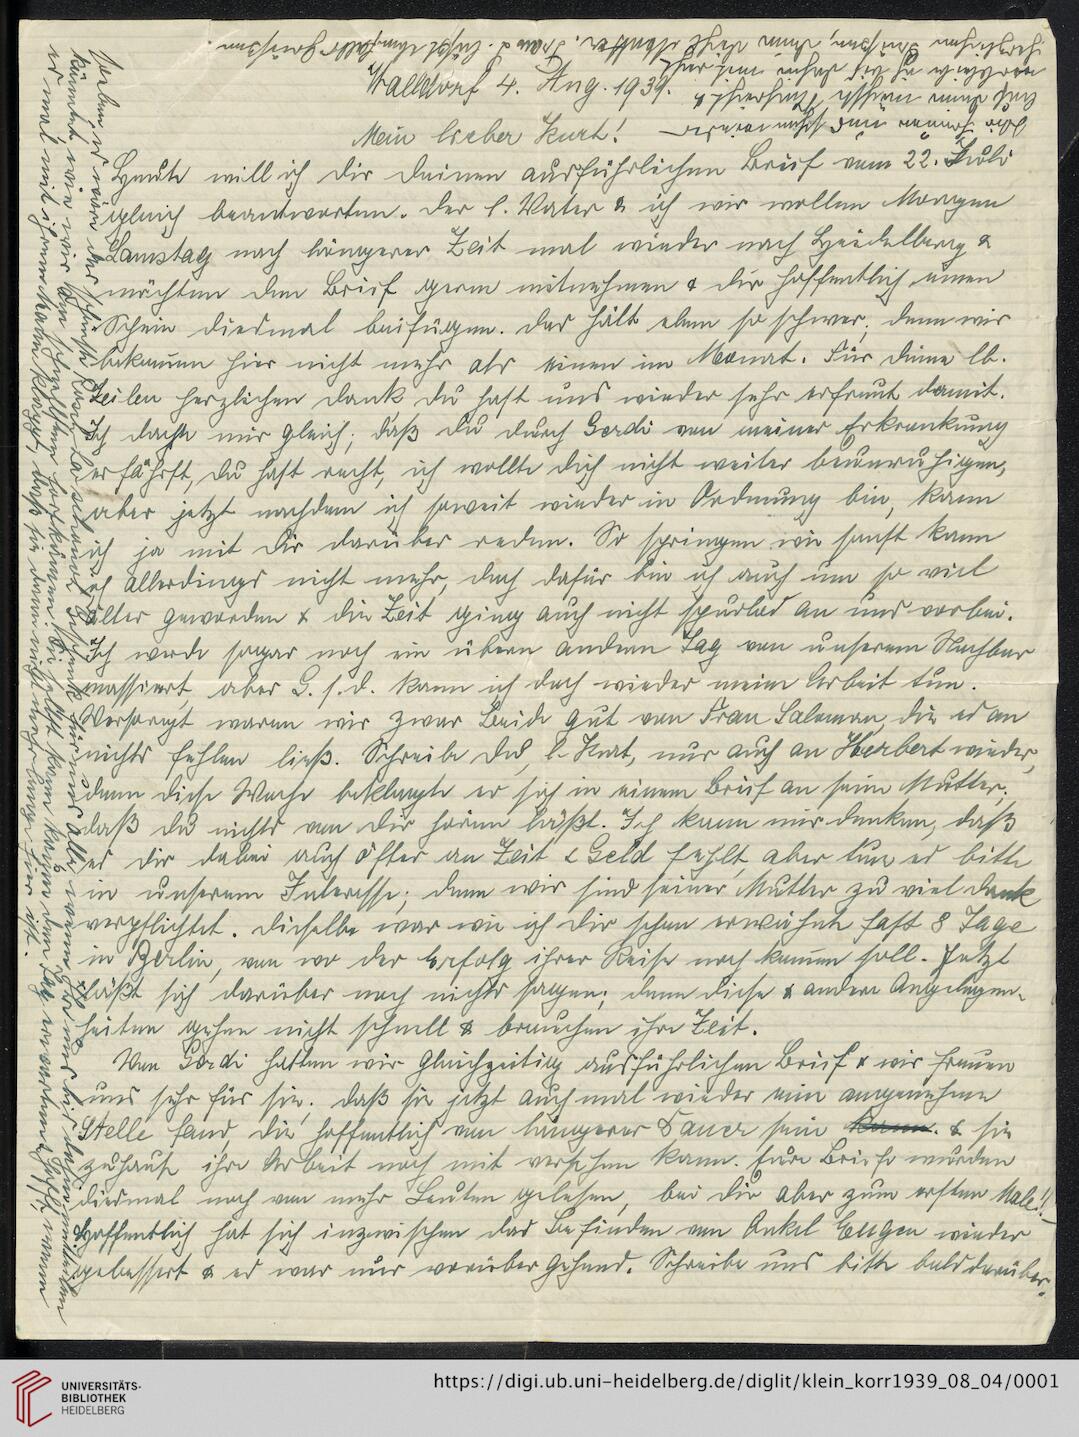 Walldorf 4. Aug. 1939.
Mein lieber Kurt!
Heute will ich Dir Deinen ausführlichen Brief vom 22. Juli
gleich beantworten. Der l. Vater & ich wir wollen Morgen
Samstag nach längerer Zeit mal wieder nach Heidelberg &
möchten den Brief gern mitnehmen & Dir hoffentlich einen
Schein diesmal beifügen. Das hält eben so schwer, denn wir
bekommen hier nicht mehr als einen im Monat. Für Deine lb.
Zeilen herzlichen Dank Du hast uns wieder sehr erfreut damit.
Ich dachte mir gleich, daß Du durch Gerdi von meiner Erkrankung
erfährst, Du hast recht, ich wollte Dich nicht weiter beunruhigen,
aber jetzt nachdem ich soweit wieder in Ordnung bin, kann
ich ja mit Dir darüber reden. So springen wie sonst kann
ich allerdings nicht mehr, doch dafür bin ich auch um so viel
älter geworden & die Zeit ging auch nicht spurlos an uns vorbei.
Ich werde sogar noch ein übern andern Tag von unserem Nachbar
massiert, aber G. s. d. kann ich doch wieder meine Arbeit tun.
Versorgt waren wir zwar Beide gut von Frau Salomon, die es an
nichts fehlen ließ. Schreibe Du, l. Kurt, nur auch an Herbert wieder,
denn diese Woche beklagte er sich in einem Brief an seine Mutter,
daß Du nichts von Dir hören läßt. Ich kann mir denken, daß
es Dir dabei auch öfter an Zeit & Geld fehlt, aber tue es bitte
in unserem Interesse; denn wir sind seiner Mutter zu viel Dank
verpflichtet. Dieselbe war wie ich Dir schon erwähnte fast 8 Tage
in Berlin, von wo der Erfolg ihrer Reise noch kommen soll. Jetzt
läßt sich darüber noch nichts sagen; denn diese & andere Angelegen-
heiten gehen nicht schnell & brauchen ihre Zeit.
Von Gerdi hatten wir gleichzeitig ausführlichen Brief & wir freuen
uns sehr für sie, daß sie jetzt auch mal wieder eine angenehme
Stelle fand, die hoffentlich von längerer Dauer sein kann. & sie
zuhause ihre Arbeit noch mit versehen kann. Eure Briefe wurden
diesmal noch von mehr Leuten gelesen, bei Dir aber zum ersten Male!!
Hoffentlich hat sich inzwischen das Befinden von Onkel Eugen wieder
gebessert & es war nur vorübergehend. Schreibe uns bitte bald darüber.
UNIVERSITÄTS-
BIBLIOTHEK
HEIDELBERG
https://digi.ub.uni-heidelberg.de/diglit/klein_korr1939_08_04/0001